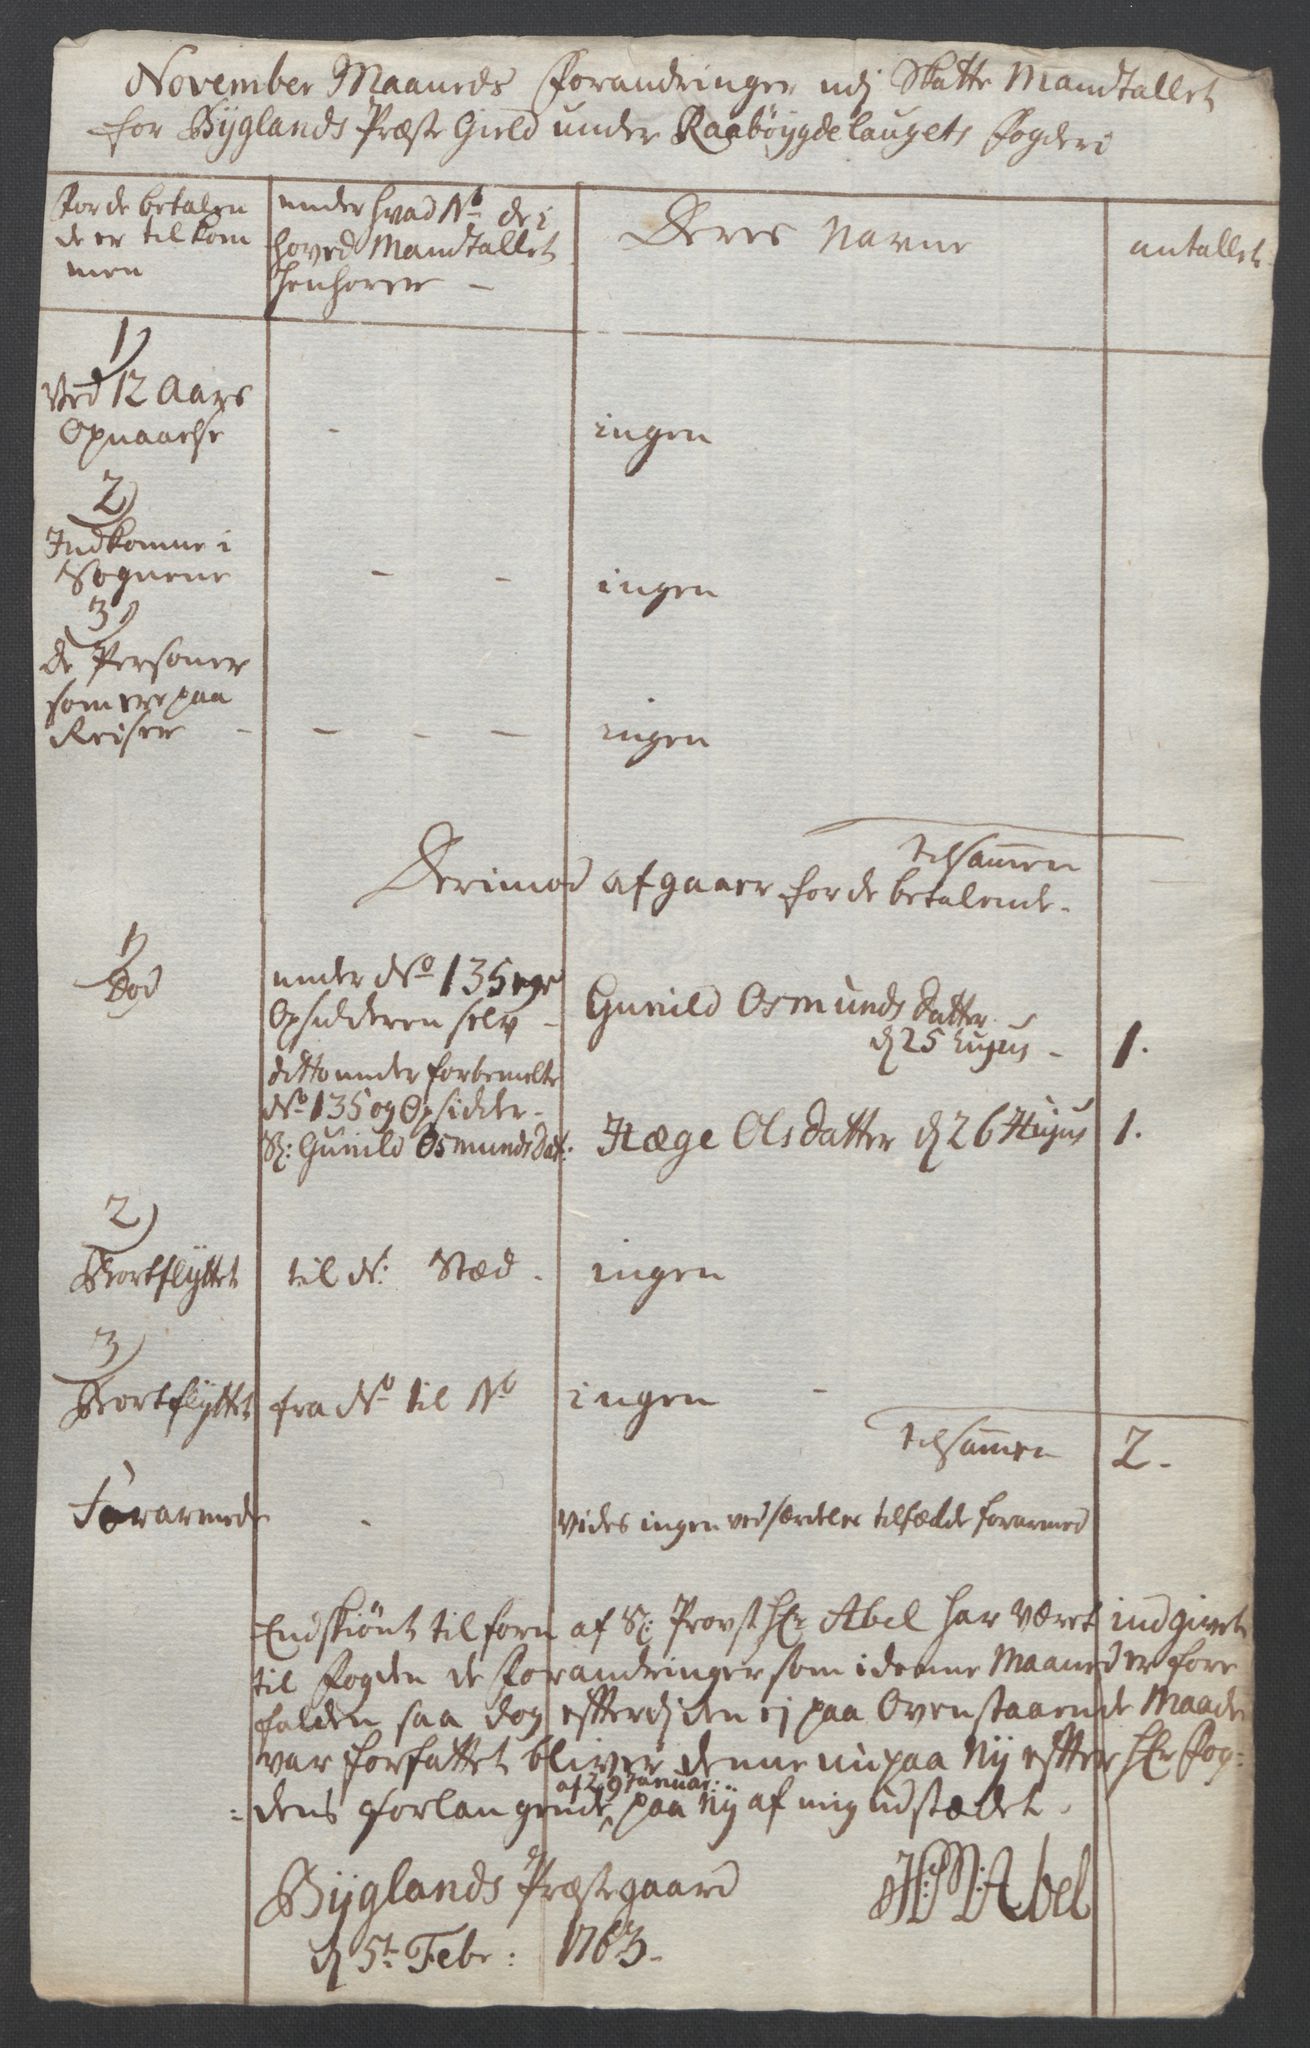 November Maaneds Forandringer udj Skatte Mandtallet
for Bÿglands Præste Gield under Raabøygdelaugets Fogderi
For de betalen
de er tilkom
men
under hvad No de i
hoved Mandtallet
henhører -
Deres Navne
antallet
1)
Ved 12 Aars
Opnaaelse
-
ingen
2)
Indkomne i
Sognene
- -
ingen
3)
de Personer
som ere paa
Reiser -
- - -
ingen
tilsammen
Derimod afgaaer for de betalende.
1)
Død
under No 135
Opsidderen selv -
Gunild Osmunds datter
d 25 hujus -
1.
ditto under forbemelte
No 135 og Opsidder
Sl: Gunild Osmunds Dat:
Hæge Olsdatter d 26 Hujus
1.
2)
Bortflÿttet
til N: Stæd.
ingen
3)
Bortflÿttet
fra No til No
ingen -
tilsammen
2.
Forarmede
-
Vides ingen ved særdeles tilfælde forarmed
Endskiønt tilforn af Sl: Provst Hr Abel har været indgivet
til Fogden de Forandringer som i denne Maaned er fore
falden saa dog efterdj den ej paa Ovenstaaende Maade
var forfattet bliver denne nu paa Nÿ efter Hr Fog=
=dens forlangende af 29 Januar: paa Nÿ af mig udstædet.
Bÿglands Præstegaard
H: M: Abel
d 5t Febr: 1763.